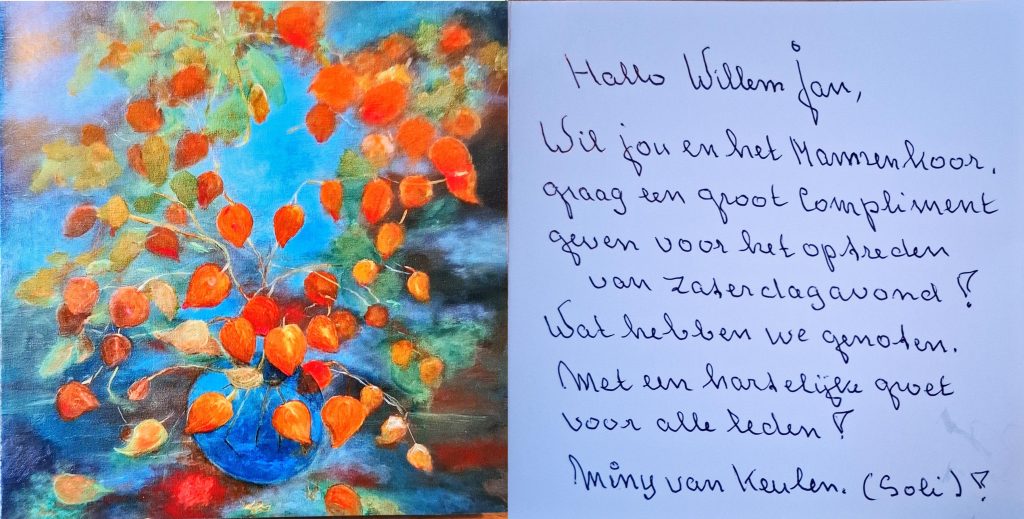 Hallo Willem Jan,
Wil jou en het Mannenkoor.
graag een groot Compliment
geven voor het optreden
van Zaterdagavond!
Wat hebben we genoten.
Met een hartelijke groet
voor alle leden!
Miny van Keulen. (Soli)!